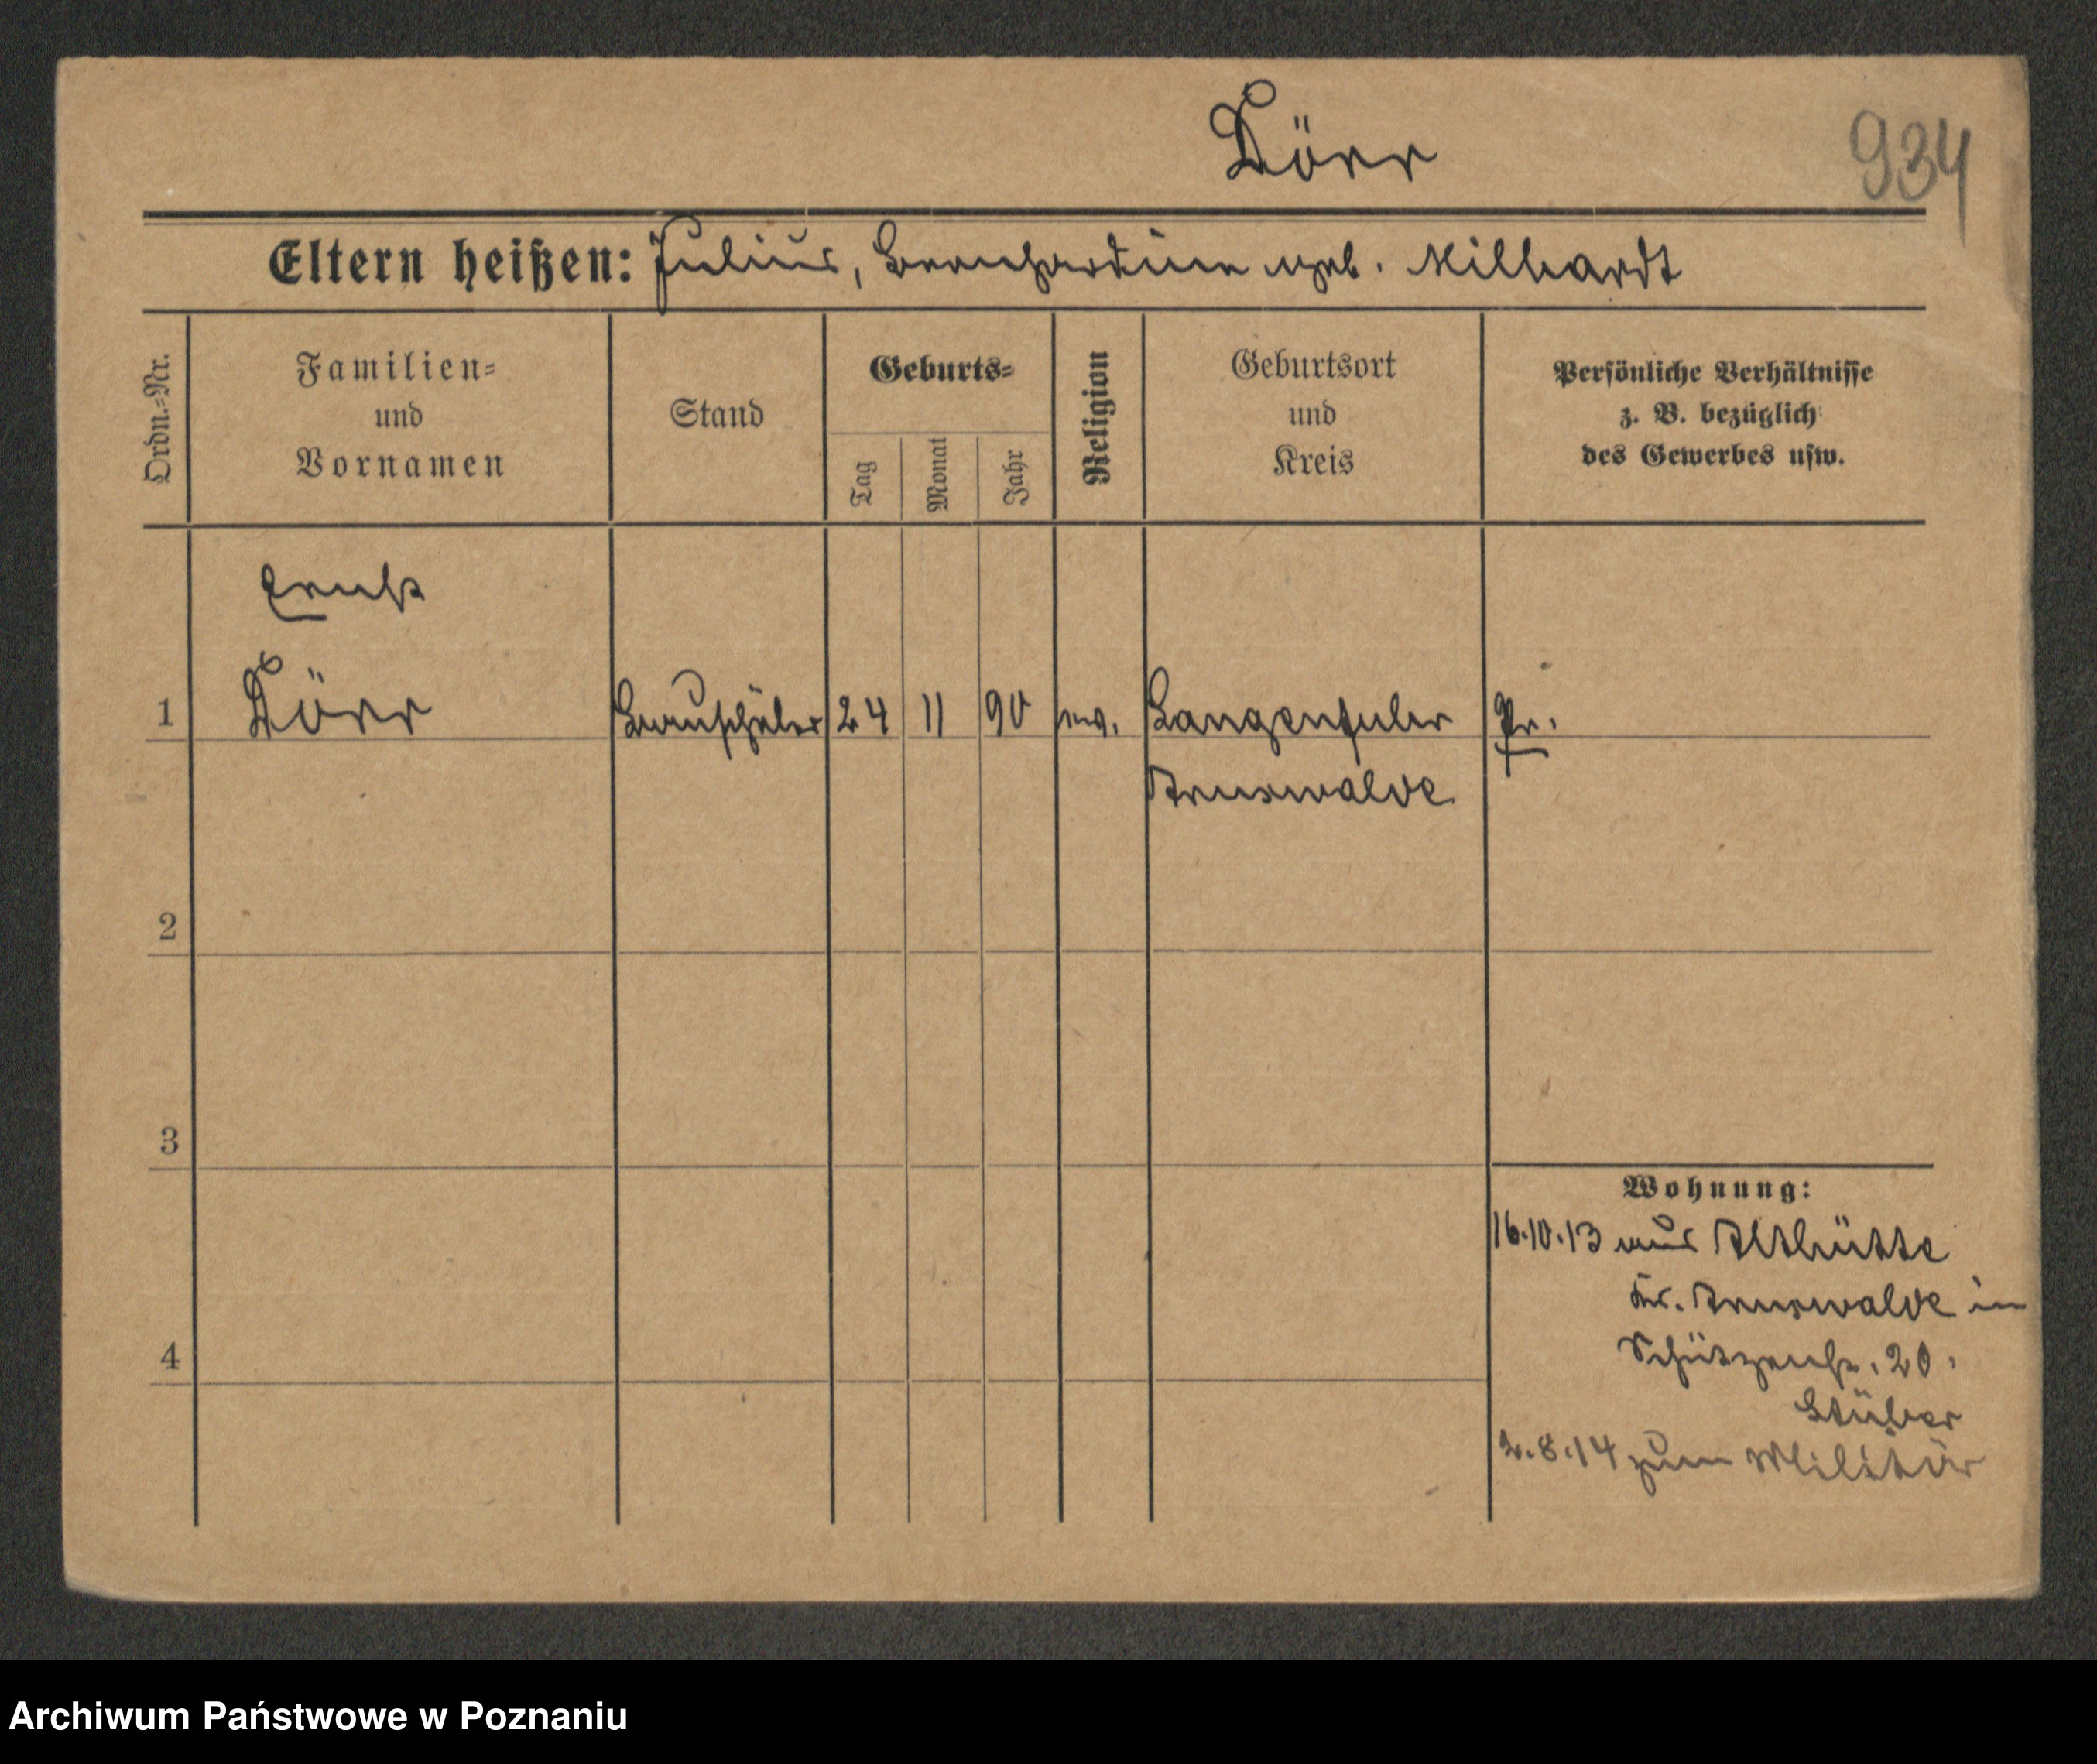 Dörr
934
Eltern heißen: Julius, Bernhardine geb. Milhardt
Ordn.-Nr.
Familien-
und
Vornamen
Stand
Geburts-
Tag
Monat
Jahr
Religion
Geburtsort
und
Kreis
Persönliche Verhältnisse
z. B. bezüglich
des Gewerbes usw.
Ernst
1 Dörr Bauschüler 24 11 90 ev. Langenfuhr Pr.
Arnswalde
2
3
Wohnung:
16.10.13 aus Althütte
Kr. Arnswalde in
4 Schützenstr. 20.
Stüber
2.8.14 zum Militär
Archiwum Państwowe w Poznaniu